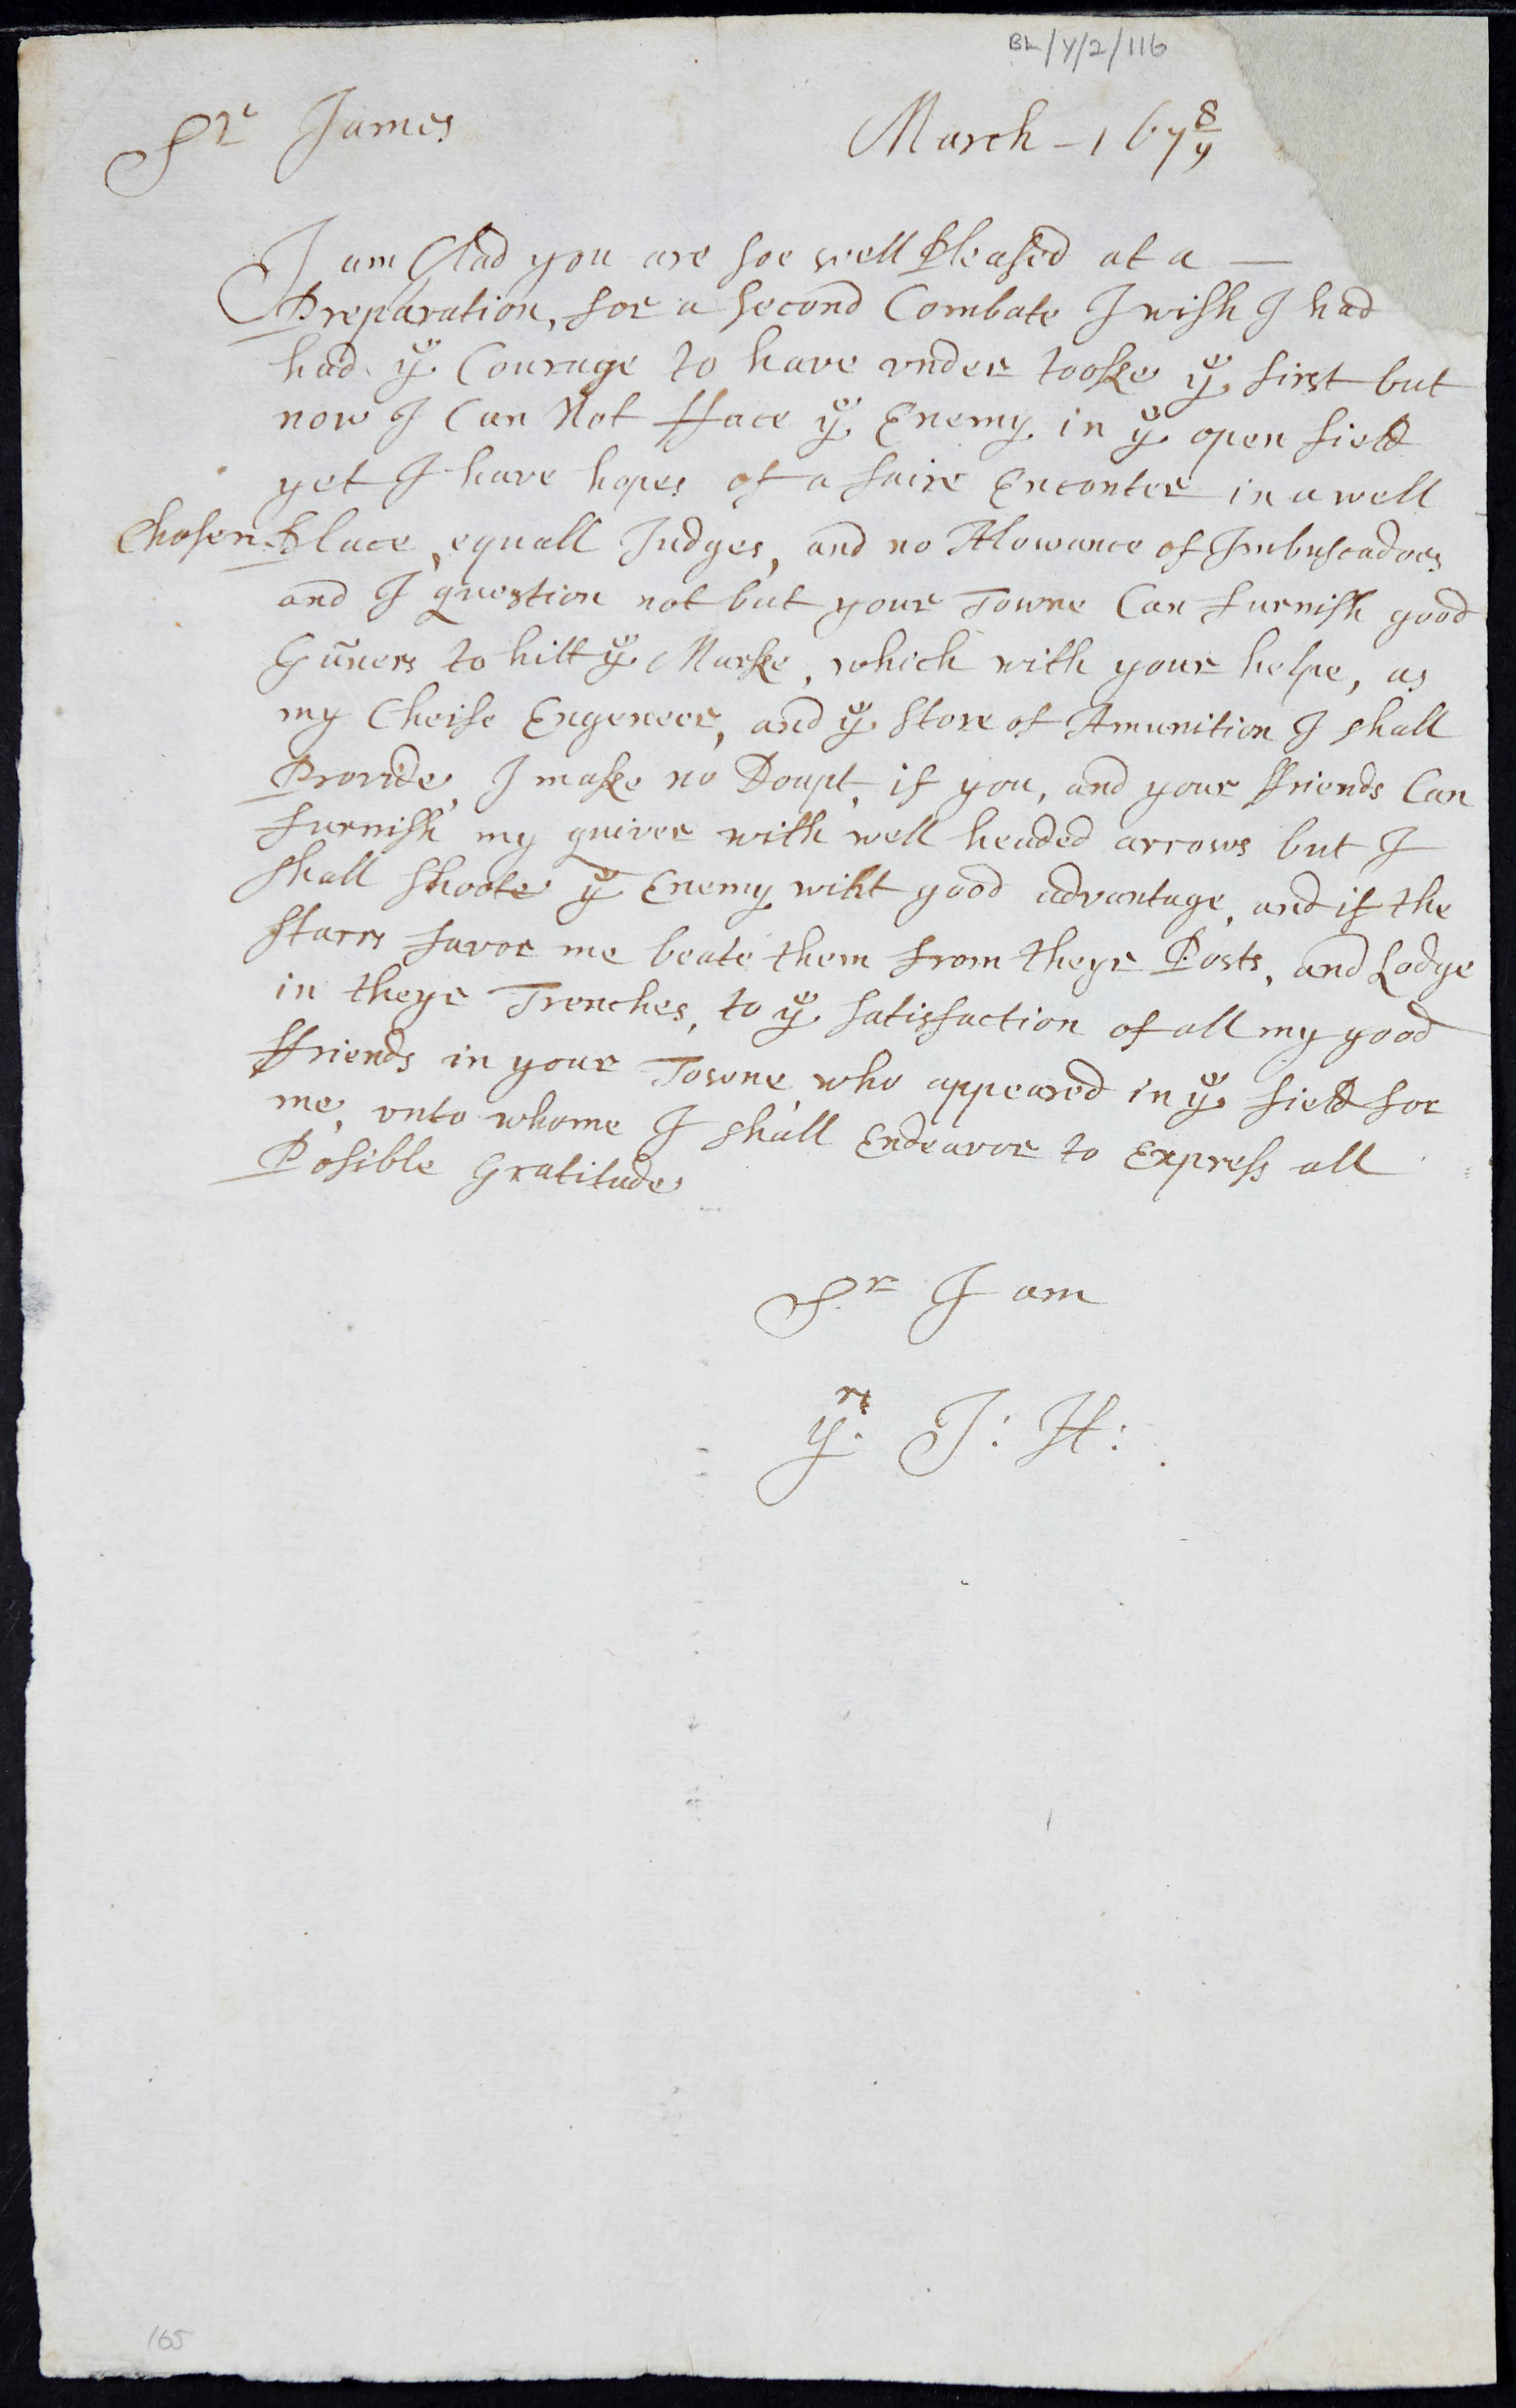 BL/Y/2/116
Sr James March - 167 8/9
I am Glad you are soe well Pleased at a —
Preparation, for a second Combate I wish I had
had ye Courage to have vnder tooke ye first but
now I Can Not fface ye Enemy in ye open field
yet I have hopes of a faire Enconter in a well
Chosen Place, equall Judges, and no Alowance of Imbuscadoes
and I question not but your Towne Can furnish good
Gūners to hitt ye Marke, which with your helpe, as
my Cheife Engeneer, and ye store of Amunition I shall
Provide, I make no Doupt, if you, and your ffriends Can
furnish my quiver with well headed arrows but I
shall shoote ye Enemy wiht good advantage, and if the
starrs favor me beate them from theyr Posts, and Lodge
in theyr Trenches, to ye satisfaction of all my good
ffriends in your Towne, who appeared in ye field for
me, vnto whome I shall Endeavor to Express all
Posible Gratitude
Sr I am
yrs J: H:
165